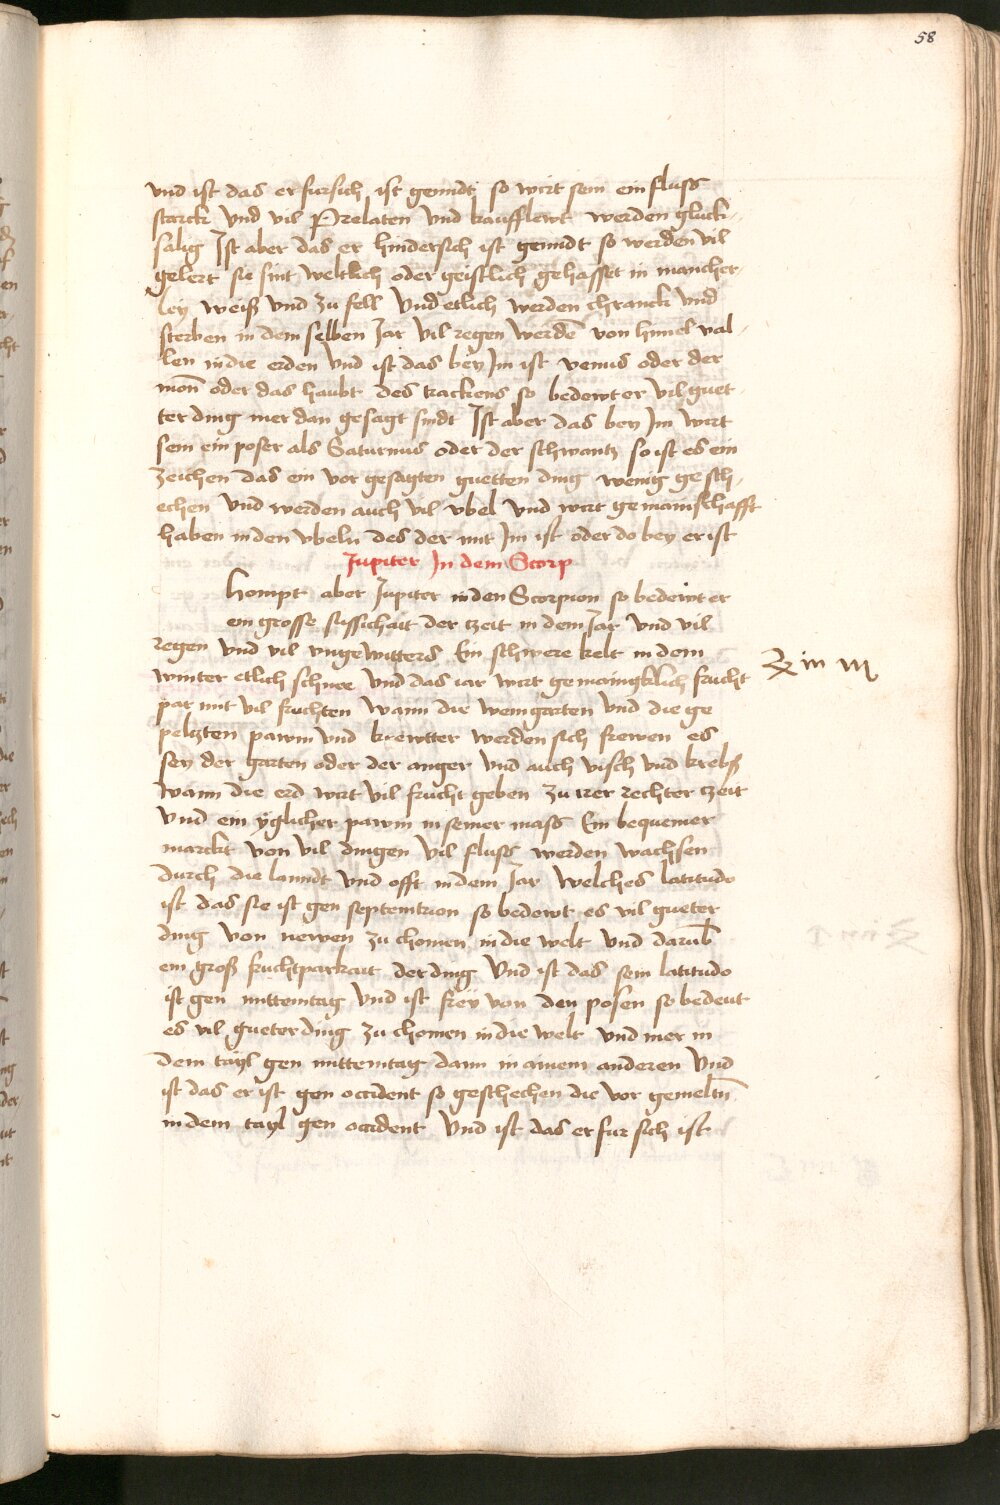 58
vnd ist das er fursich ist genndt so wirt sein ein fluss
starck vnd vil Prelaten vnd kaufflewt werden gluck-
salig Ist aber das er hindersich ist genndt so werden vil
gelert sie sint weltlich oder geistlich gehasset in mancher-
ley weiß vnd zu fell Vnd etlich werden chranck vnd
sterben in dem selben Jar vil regen werdē von himel val-
len in die erden vnd ist das bey Im ist venus oder der
mon oder das haubt des trackens so bedewt er vil guet-
ter ding mer dan gesagt sindt Ist aber das bey Im wirt
sein ein poser als Saturnus oder der schwantz so ist es ein
zeichen das ein vor gesagten guetten ding wenig gesch-
echen vnd werden auch vil vbel vnd wirt gemainschafft
haben in den vbeln des der mit Im ist oder do bey er ist
Jupiter In dem Scorp
kompt aber Jupiter in den Scorpion so bedewt er
ein grosse sussichait der czeit in dem Jar vnd vil
regen vnd vil vngewitters Ein schwere kelt in dem
winter etlich schnee vnd das iar wirt gemaingklich frucht
par mit vil fruchten wann die weingarten vnd die ge
pelczten pawm vnd krewtter werden sich frewen es
sey der garten oder der anger vnd auch visch vnd krebß
wann die erd wirt vil frucht geben zu irer rechter czeit
vnd ein yglicher pawm in seiner mass Ein bequemer
marckt von vil dingen vil fluss werden wachsen
durch die lanndt vnd offt in dem Jar welches latitudo
ist das sie ist gen septemtrion so bedewt es vil gueter
ding von newen zu chomen in die welt vnd darub
ein groß fruchtparkait der ding Vnd ist das sein latitudo
ist gen mittemtag vnd ist frey von den posen so bedeut
es vil gueter ding zu chomen in die welt vnd mer in
dem tayl gen mittemtag dann in ainem anderen Vnd
ist das er ist gen occident so geschechen die vor gemeltn
in dem tayl gen occident Vnd ist das er fur sich ist
♃ in ♏